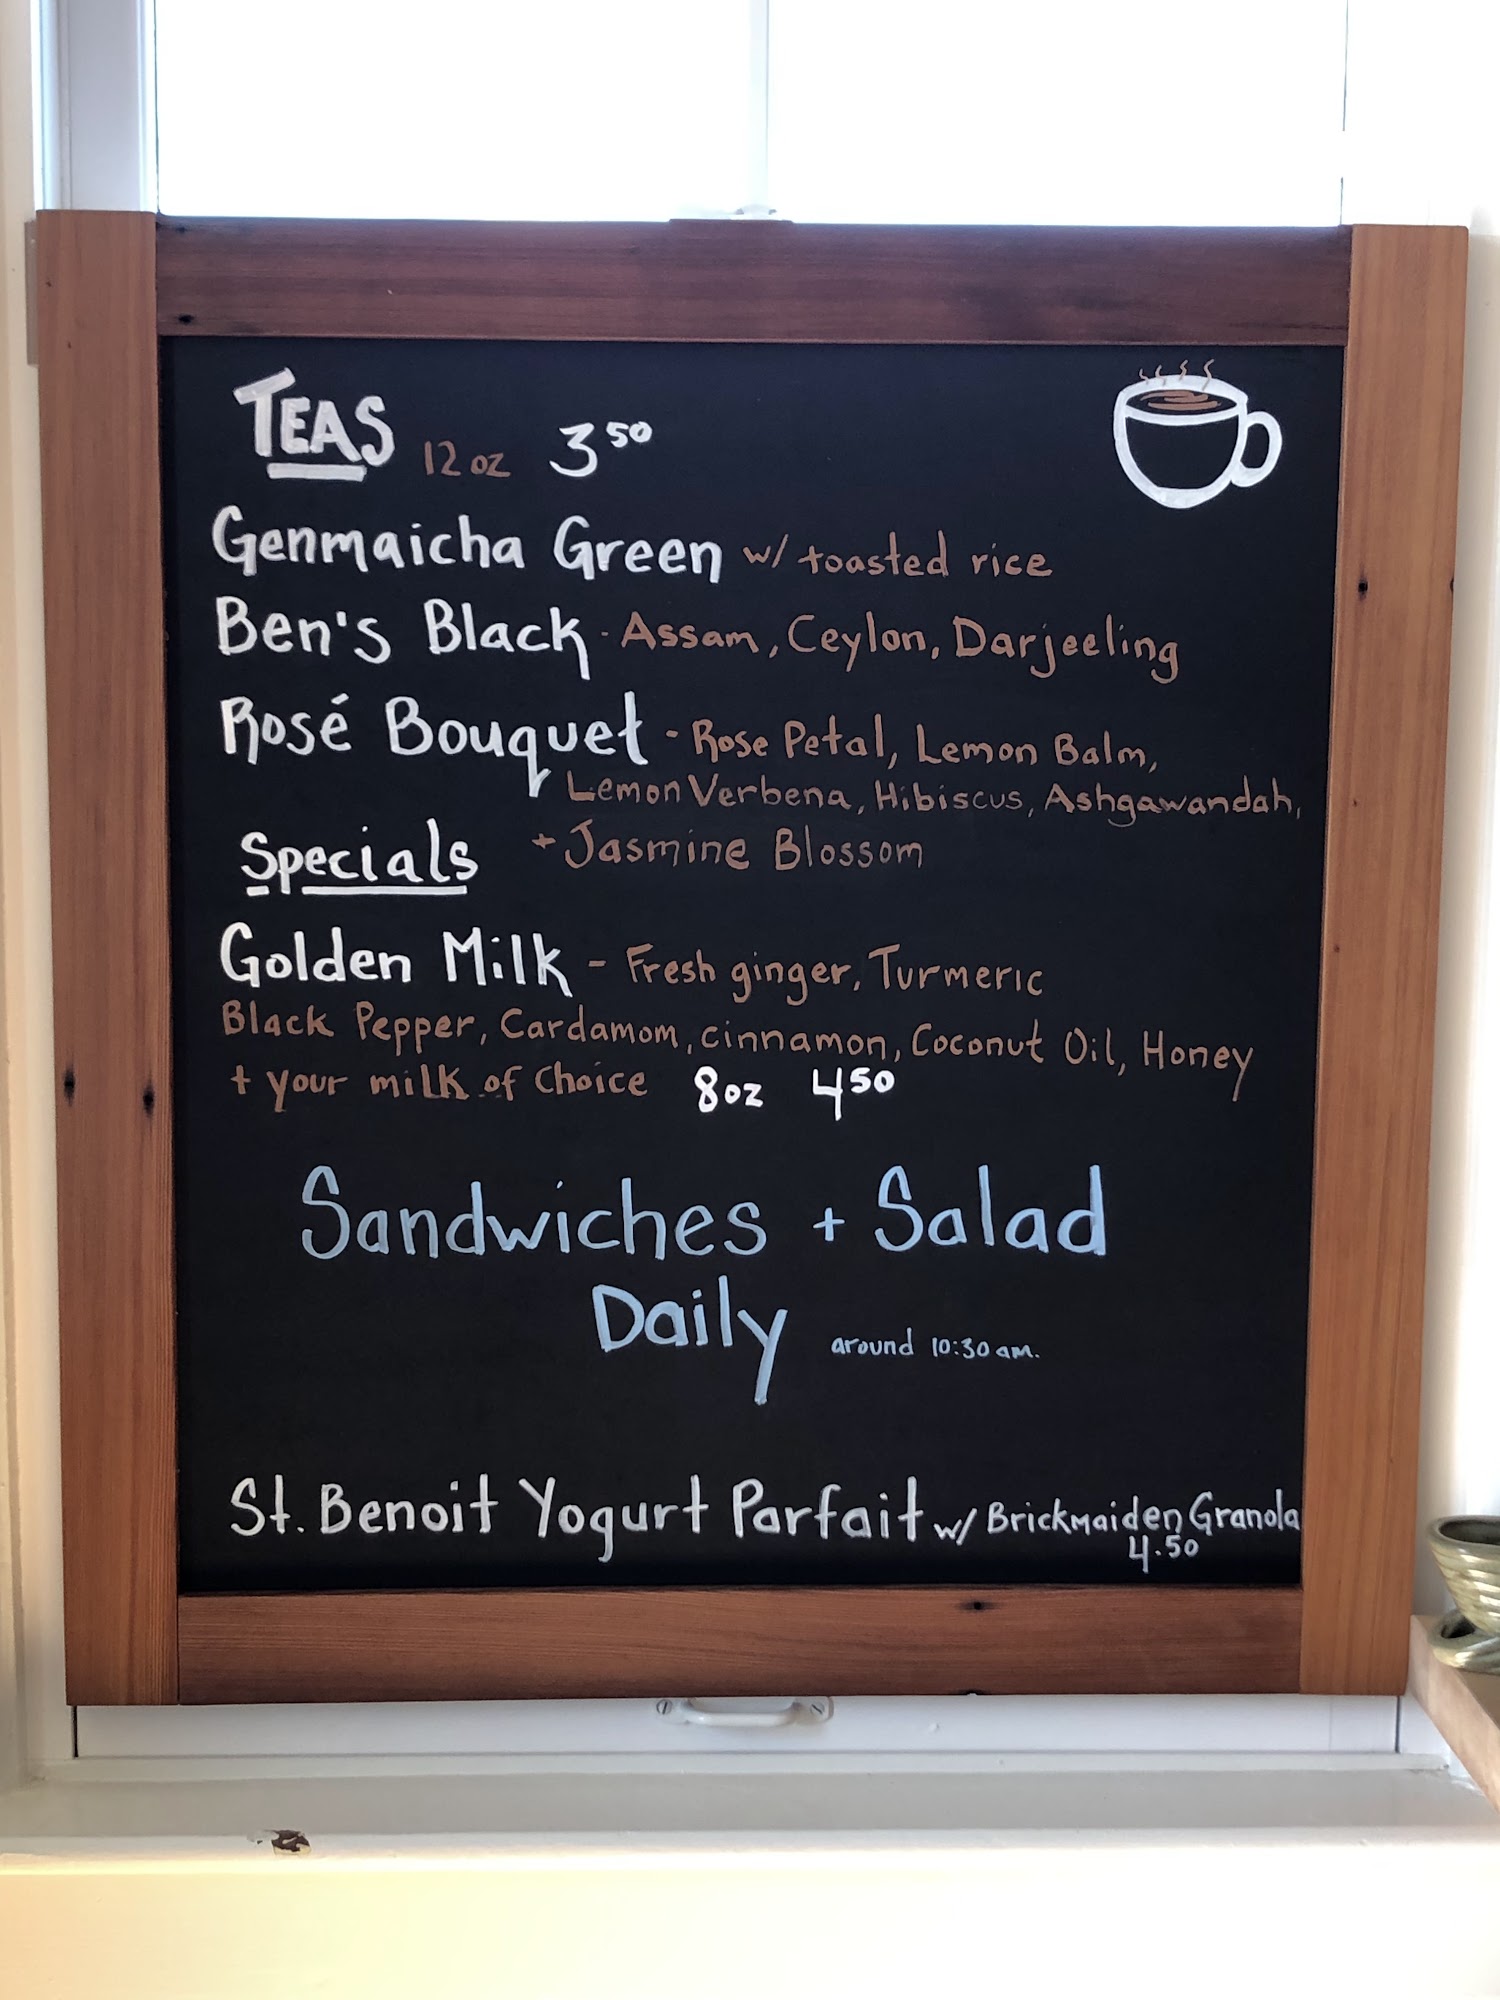 TEAS 12 oz 3 50
Genmaicha Green w/ toasted rice
Ben's Black - Assam, Ceylon, Darjeeling
Rosé Bouquet - Rose Petal, Lemon Balm,
Lemon Verbena, Hibiscus, Ashgawandah,
+ Jasmine Blossom
Specials
Golden Milk - Fresh ginger, Turmeric
Black Pepper, Cardamom, cinnamon, Coconut Oil, Honey
+ your milk of choice 8oz 4 50
Sandwiches + Salad
Daily around 10:30 am.
St. Benoit Yogurt Parfait w/ Brickmaiden Granola
4.50